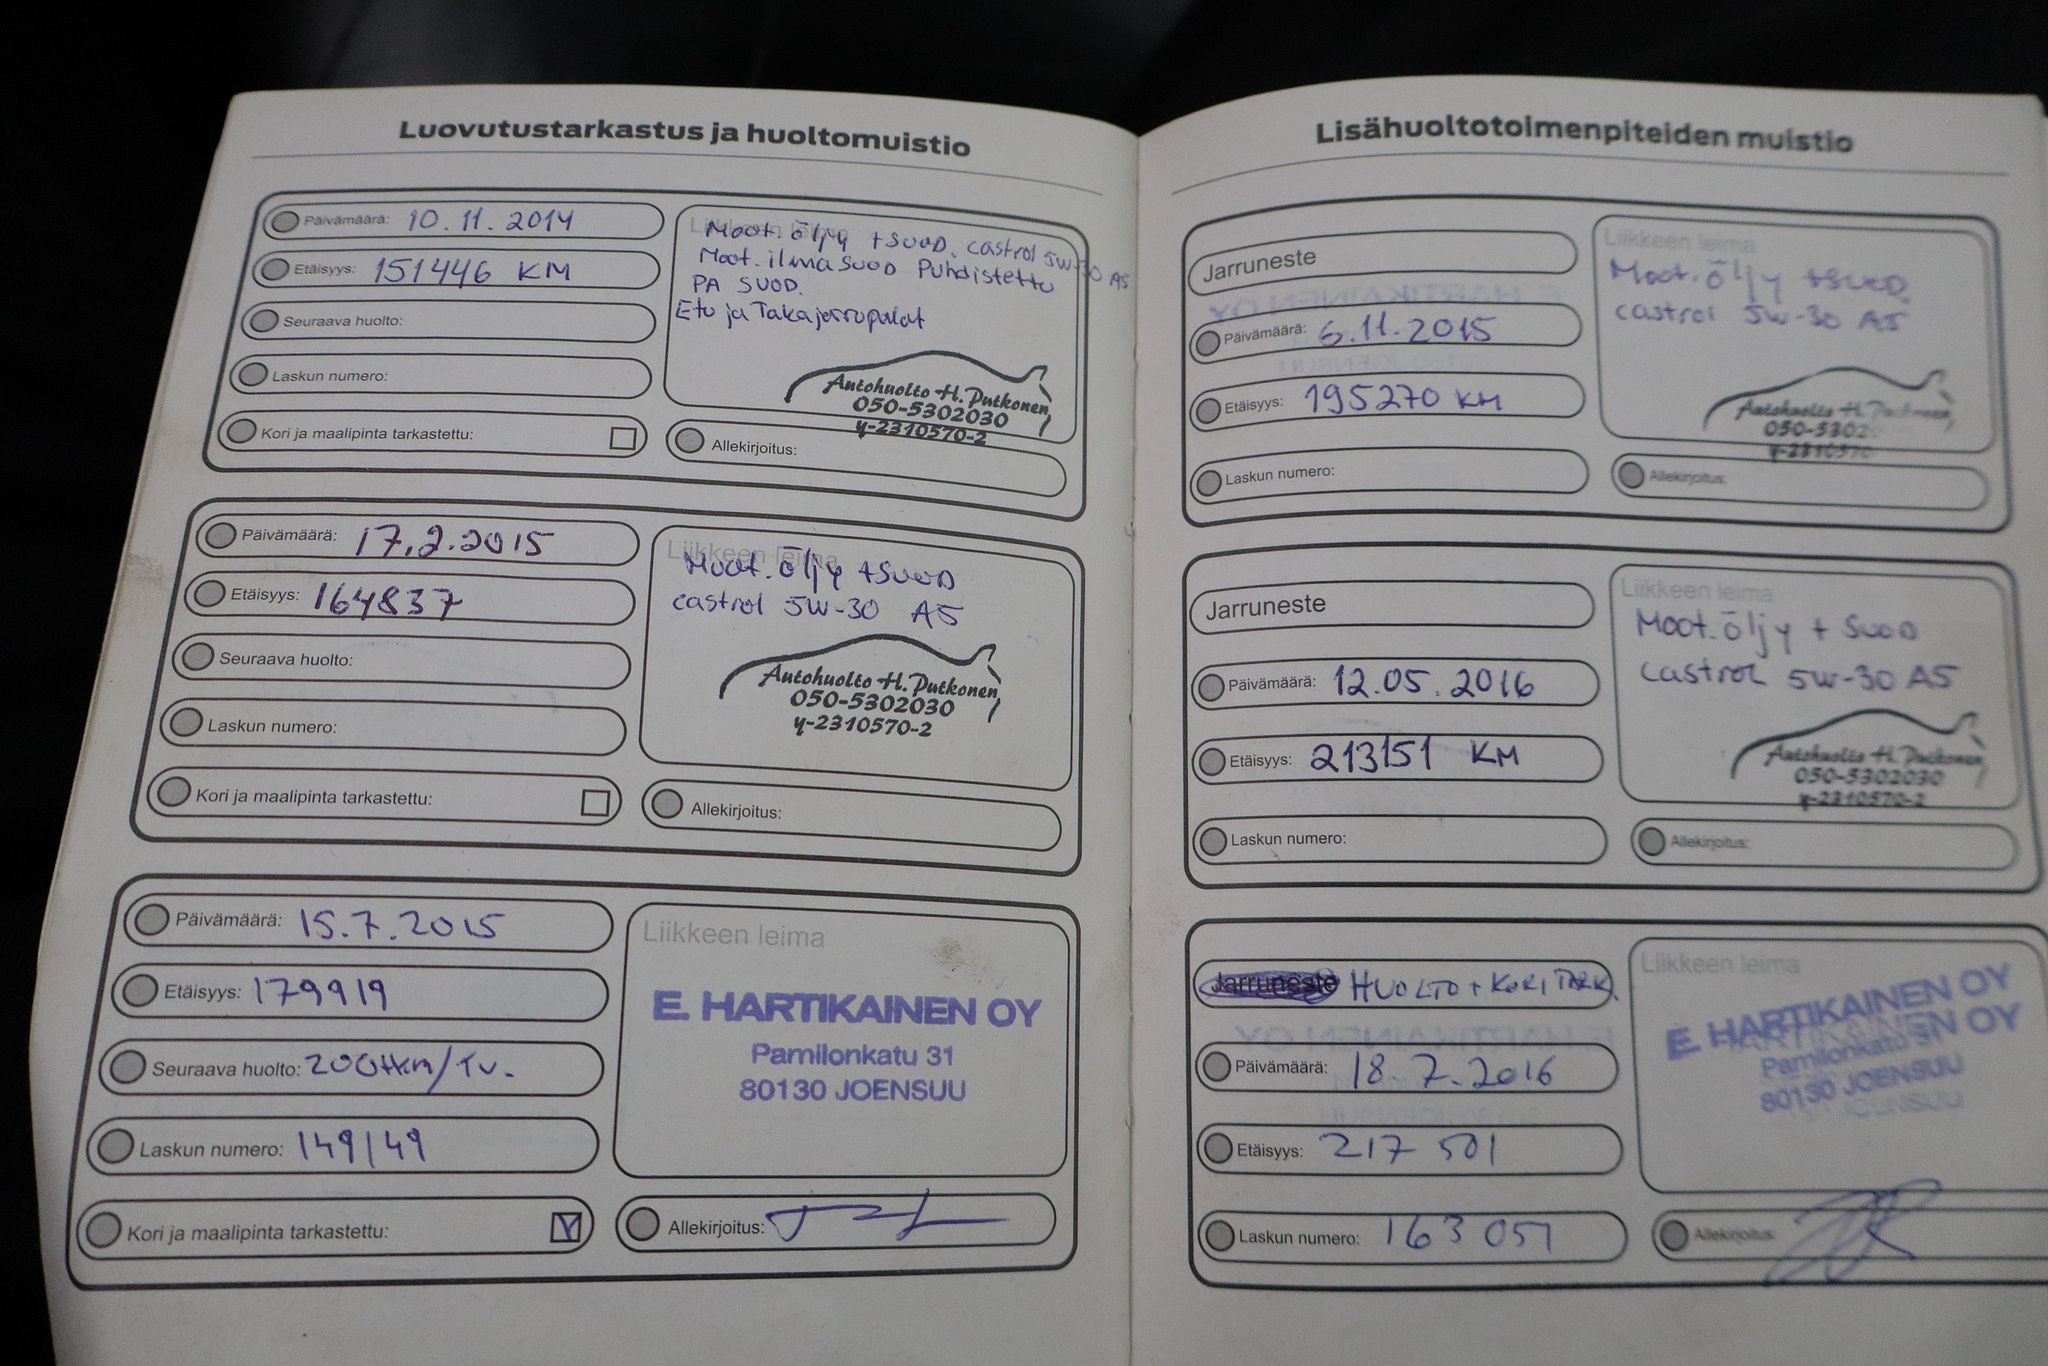 Luovutustarkastus ja huoltomuistio
Päivämäärä: 10.11.2014
Etäisyys: 151446 KM
Seuraava huolto:
Laskun numero:
Kori ja maalipinta tarkastettu:
Liikkeen leima
Moot. öljy +SUOD. castrol 5W-30 A5
Moot. ilma SUOD Puhdistettu
PA SUOD.
Etu ja Takajarrupalat
Autohuolto H. Putkonen
050-5302030
y-2310570-2
Allekirjoitus:
Päivämäärä: 17.2.2015
Etäisyys: 164837
Seuraava huolto:
Laskun numero:
Kori ja maalipinta tarkastettu:
Liikkeen leima
Moot. öljy +SUOD
castrol 5W-30 A5
Autohuolto H. Putkonen
050-5302030
y-2310570-2
Allekirjoitus:
Päivämäärä: 15.7.2015
Etäisyys: 179919
Seuraava huolto: 200tkm/1v.
Laskun numero: 149149
Kori ja maalipinta tarkastettu:
Liikkeen leima
E. HARTIKAINEN OY
Pamilonkatu 31
80130 JOENSUU
Allekirjoitus:
Lisähuoltotoimenpiteiden muistio
Jarruneste
Päivämäärä: 6.11.2015
Etäisyys: 195270 KM
Laskun numero:
Liikkeen leima
Moot. öljy +SUOD.
castrol 5W-30 A5
Autohuolto H. Putkonen
050-5302
y-2310570
Allekirjoitus:
Jarruneste
Päivämäärä: 12.05.2016
Etäisyys: 213151 KM
Laskun numero:
Liikkeen leima
Moot. öljy + SUOD
castrol 5W-30 A5
Autohuolto H. Putkonen
050-5302030
y-2310570-2
Allekirjoitus:
Jarruneste HUOLTO + KORITARK.
Päivämäärä: 18.7.2016
Etäisyys: 217 501
Laskun numero: 163 057
Liikkeen leima
E. HARTIKAINEN OY
Pamilonkatu 31
80130 JOENSUU
Allekirjoitus: